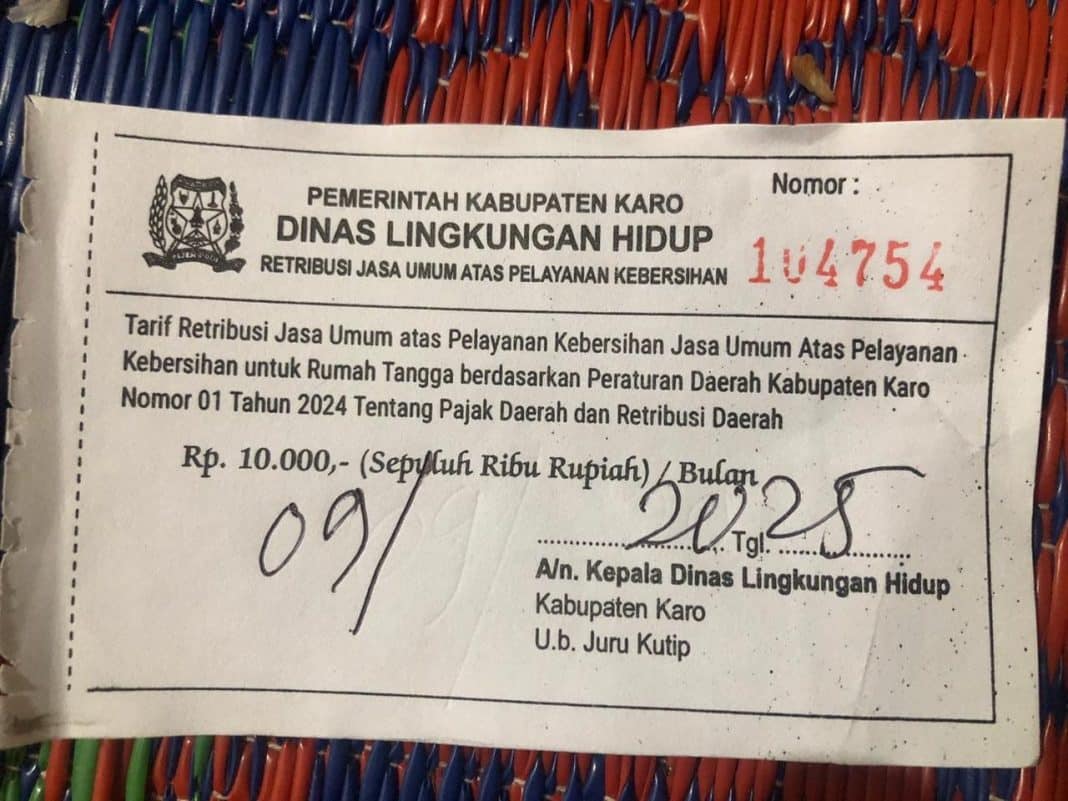 PEMERINTAH KABUPATEN KARO
DINAS LINGKUNGAN HIDUP
RETRIBUSI JASA UMUM ATAS PELAYANAN KEBERSIHAN
Nomor :
104754
Tarif Retribusi Jasa Umum atas Pelayanan Kebersihan Jasa Umum Atas Pelayanan
Kebersihan untuk Rumah Tangga berdasarkan Peraturan Daerah Kabupaten Karo
Nomor 01 Tahun 2024 Tentang Pajak Daerah dan Retribusi Daerah
Rp. 10.000,- (Sepuluh Ribu Rupiah) / Bulan
09/ 2025
.......................... Tgl. ....................
A/n. Kepala Dinas Lingkungan Hidup
Kabupaten Karo
U.b. Juru Kutip